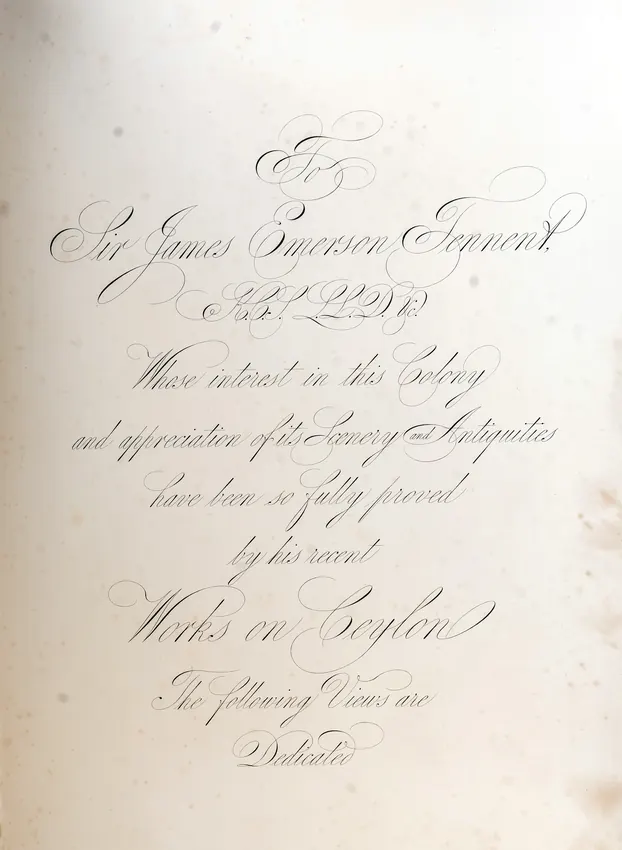 To
Sir James Emerson Tennent,
K.C.S. LL.D. &c.
Whose interest in this Colony
and appreciation of its Scenery and Antiquities
have been so fully proved
by his recent
Works on Ceylon
The following Views are
Dedicated